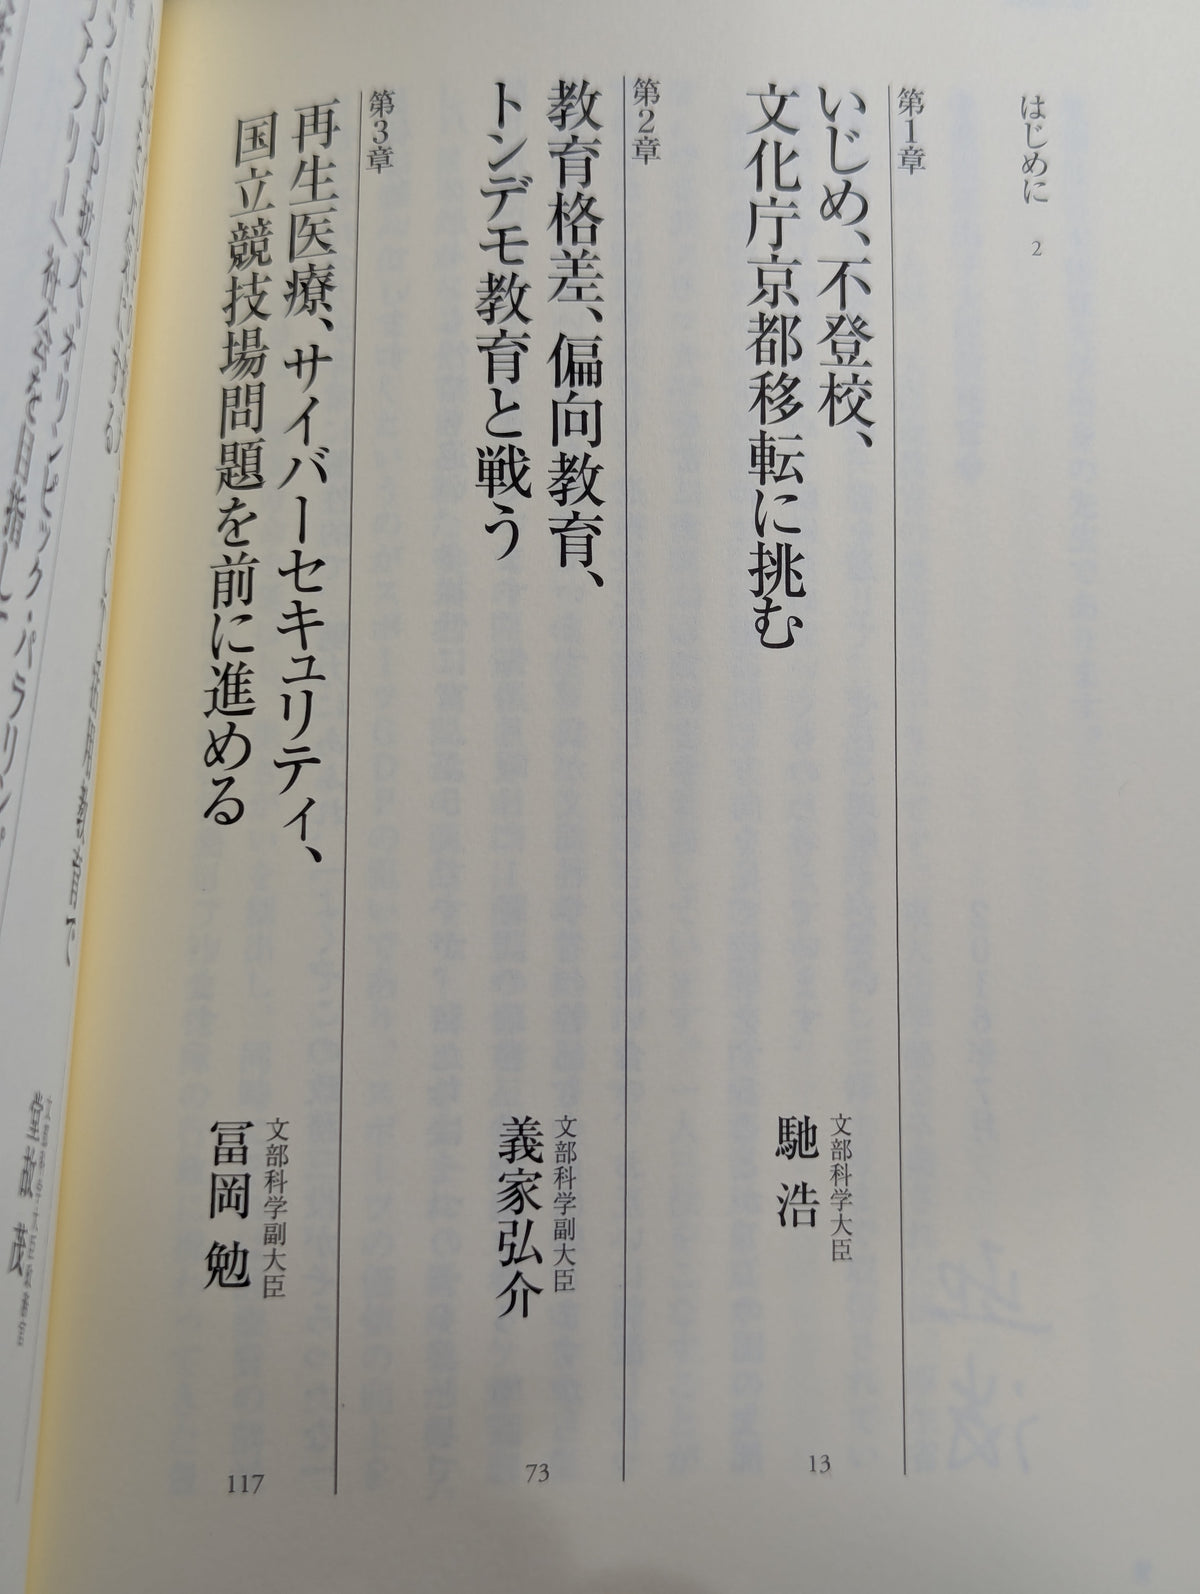 はじめに 2
第1章
いじめ、不登校、
文化庁京都移転に挑む
文部科学大臣
馳 浩
13
第2章
教育格差、偏向教育、
トンデモ教育と戦う
文部科学副大臣
義家弘介
73
第3章
再生医療、サイバーセキュリティ、
国立競技場問題を前に進める
文部科学副大臣
冨岡 勉
117